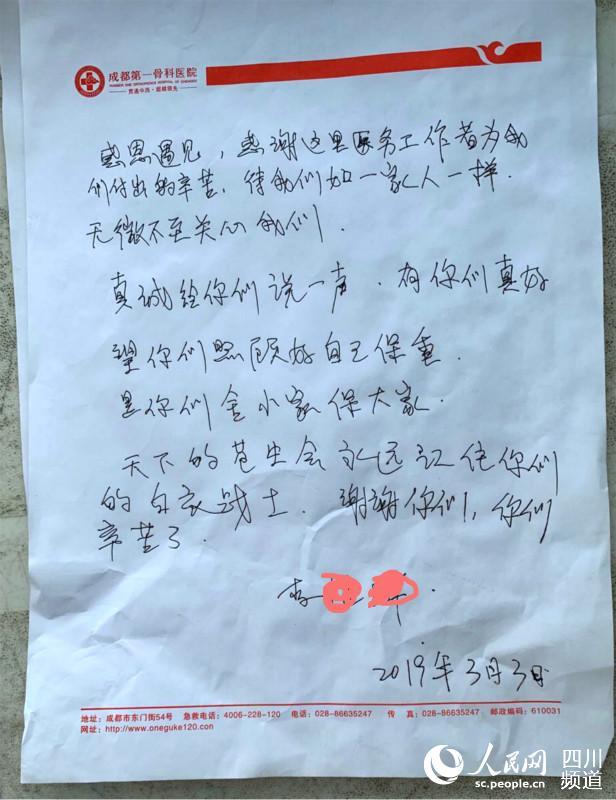 成都第一骨科医院
NUMBER ONE ORTHOPEDICS HOSPITAL OF CHENGDU
贯通中西·超越领先
感恩遇见，感谢这里医务工作者为我
们付出的辛苦，待我们如一家人一样.
无微不至关心我们.
真诚给你们说一声.有你们真好
望你们照顾好自己保重.
是你们舍小家保大家.
天下的苍生会永远记住你们
的白衣战士.谢谢你们,你们
辛苦了.
李
2019年3月3日
地址：成都市东门街54号 急救电话：4006-228-120 电话：028-86635247 传 真：028-86635247 邮政编码：610031
网址：http://www.oneguke120.com
人民网 四川
sc.people.cn 频道